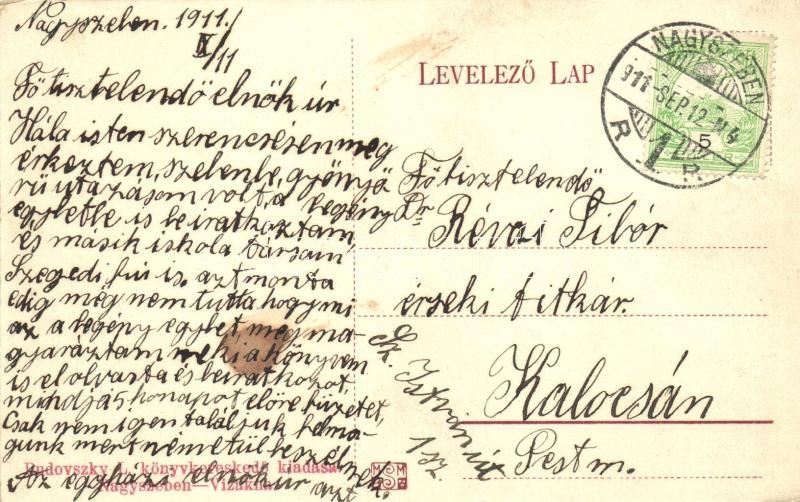 Nagyszeben. 1911./
IX/11
Főtisztelendő elnök úr
Hála isten szerencsésen meg
érkeztem, szelenbe, gyönyö
rű utazásom volt, a legény
egyletbe is beiratkoztam,
és másik iskola társam
Szegedi fiú is. azt monta
edig még nem tutta hogy mi
az a legény egylet, megma-
gyaráztam neki a könyvem
is elolvasta és beiratkozot,
mindjá 5 honapot előre fizetet,
Csak nem igen találjuk fel ma-
gunk mert németűl beszélnek.
Az egyházi elnök úr azt
LEVELEZŐ LAP
NAGYSZEBEN
911 SEP 12
5
Főtisztelendő
Dr Révai Tibór
érseki titkár.
Kalocsán
Sz. István út
1 sz.
Pest m.
Budovszky L. könyvkereskedő kiadása
Nagyszeben—Vizakna